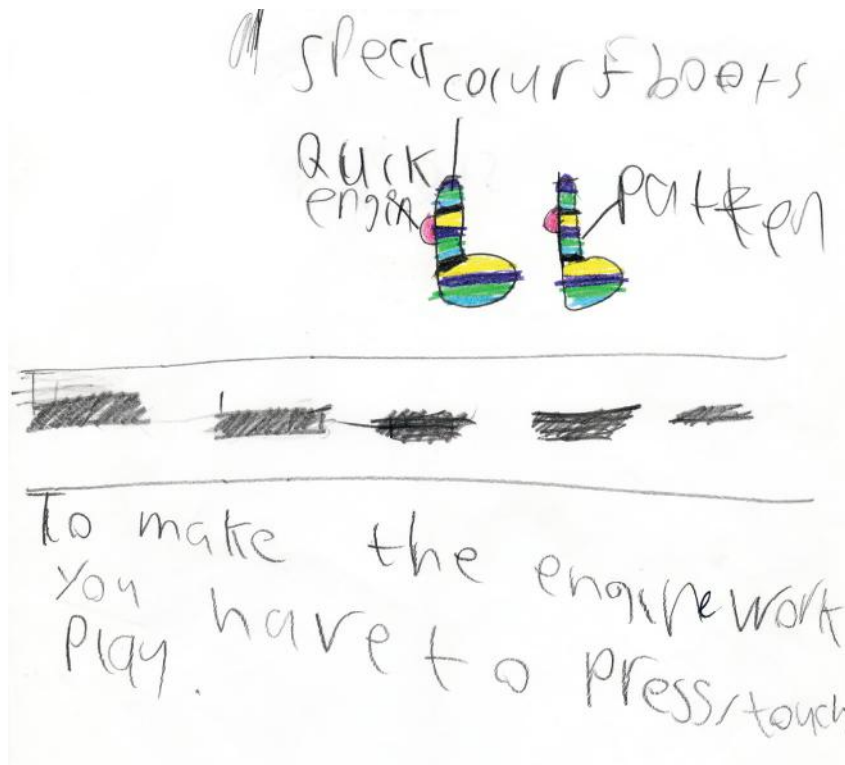 boots
Quick
engin
patten
To make the engine work
you have to press/touch
Play.